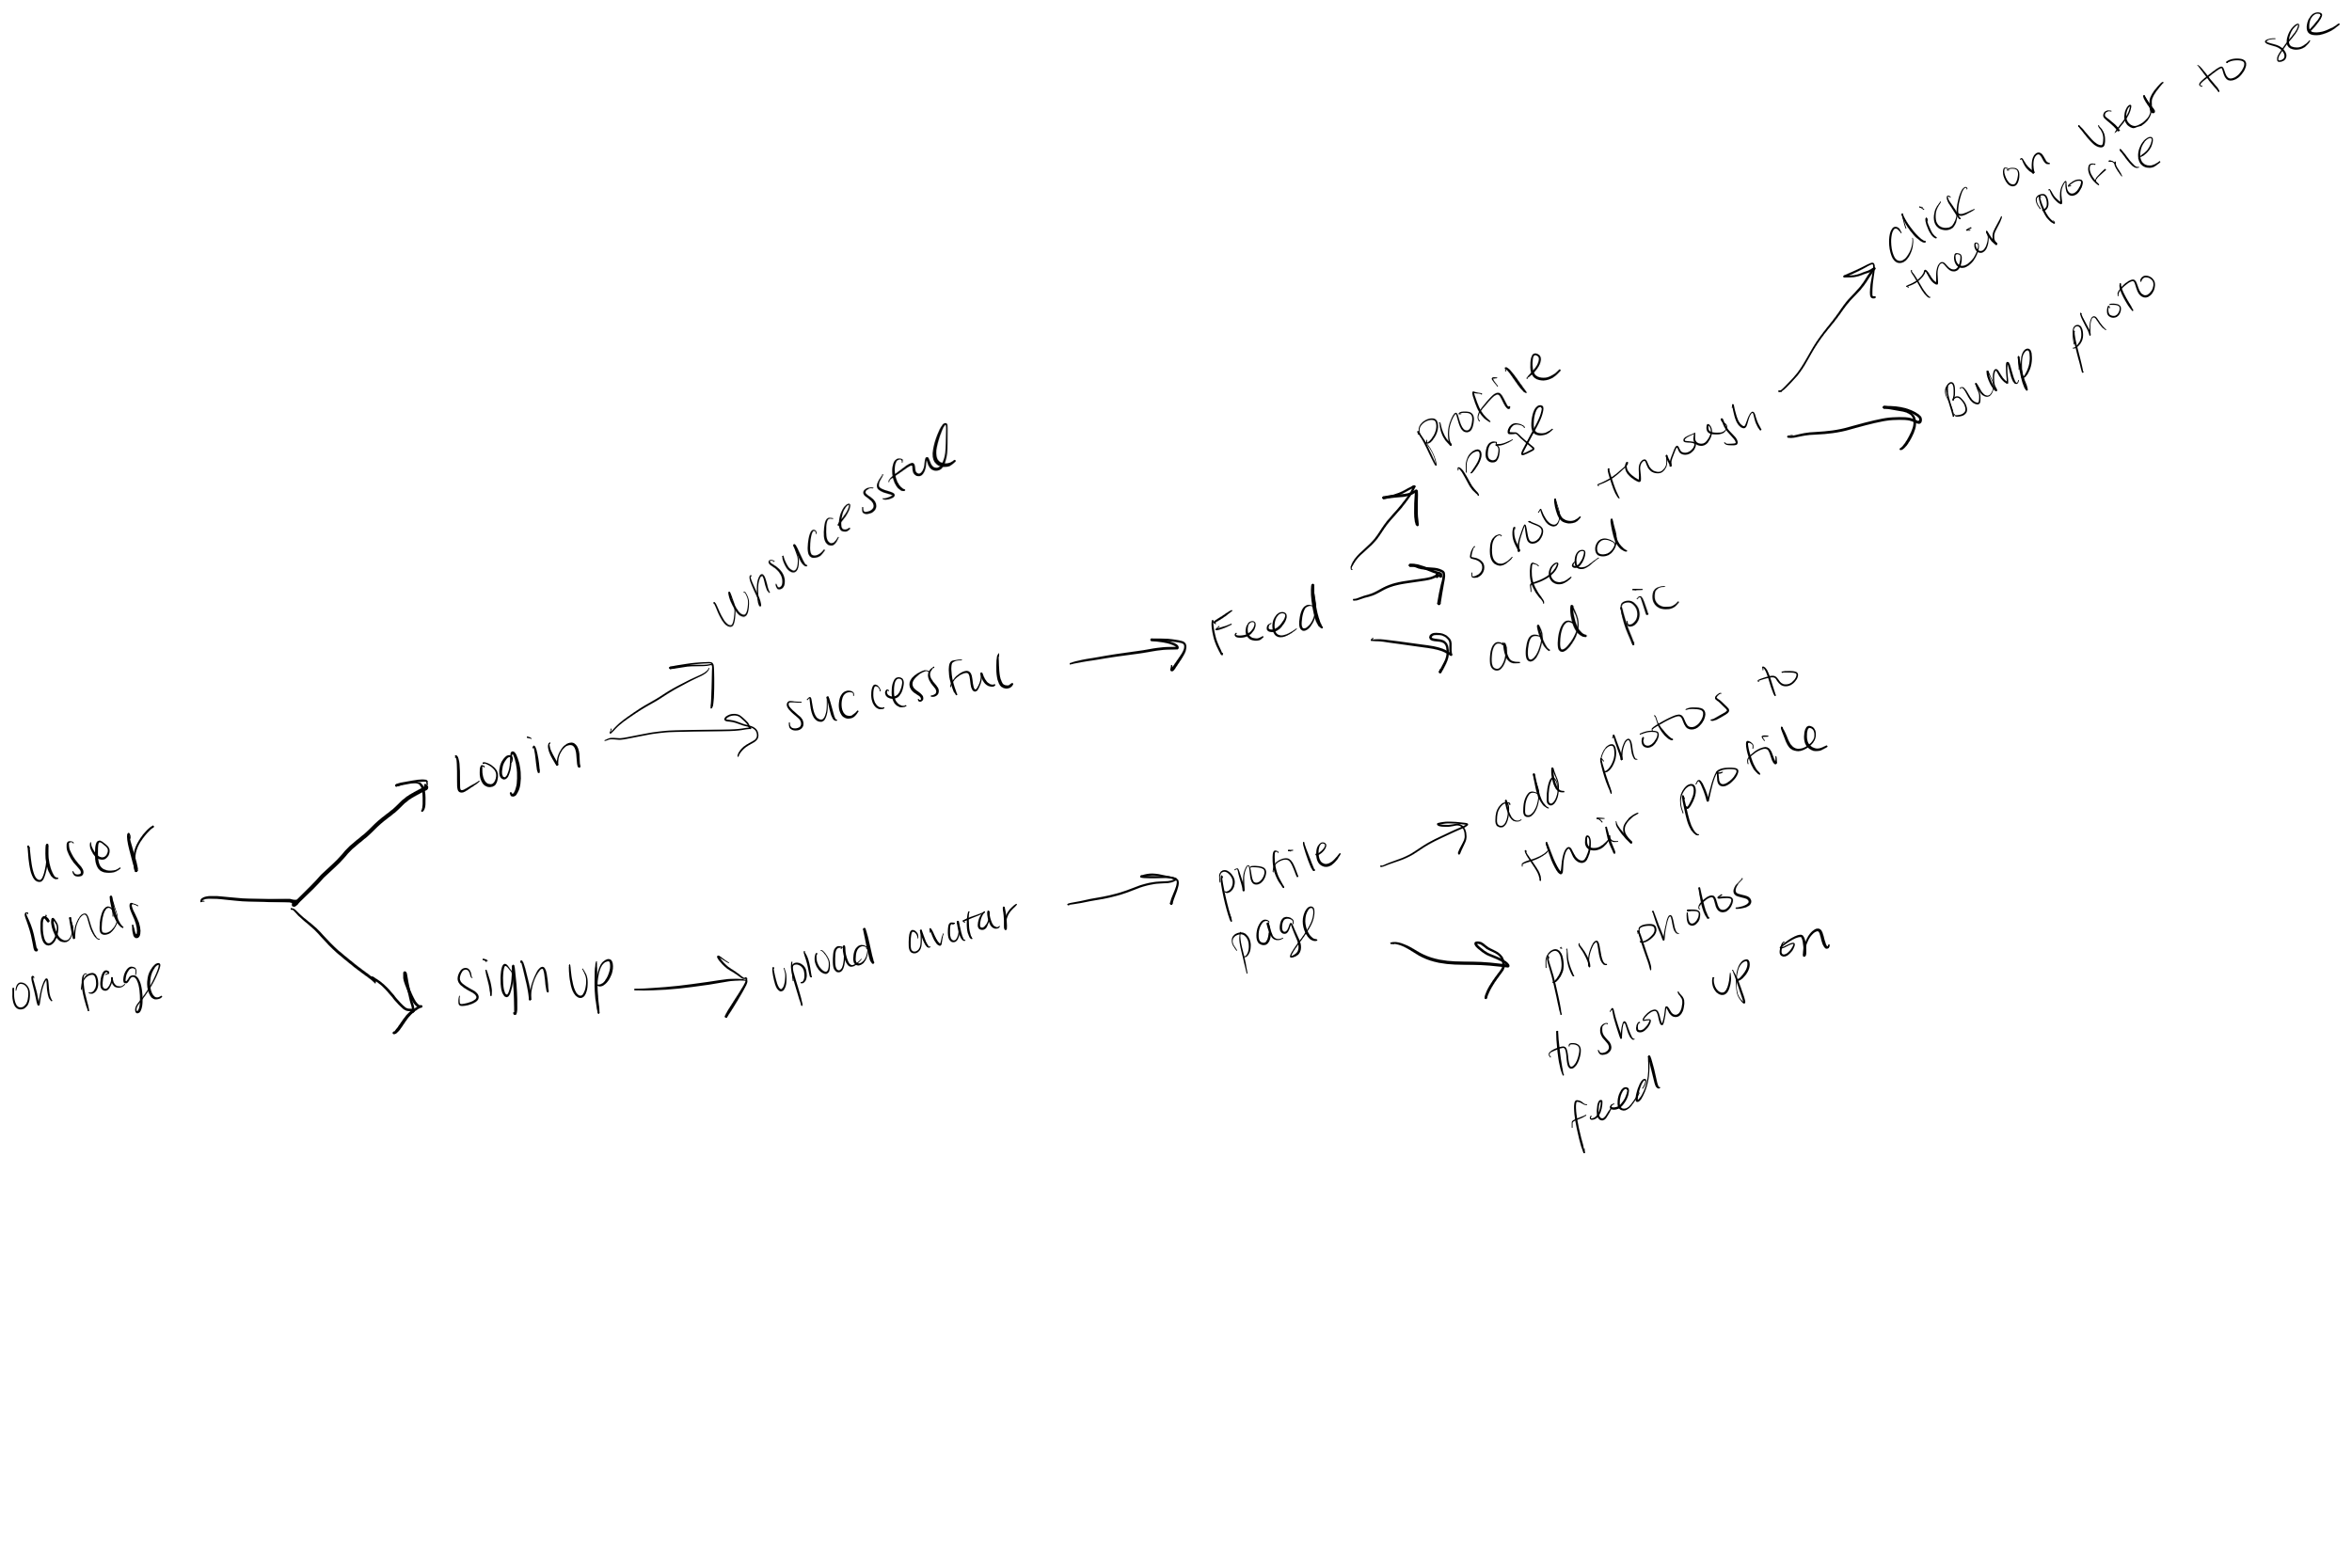 User
lands
on page
Login
unsuccessful
successful
Feed
profile
page
scroll through
feed
add pic
Click on user to see
their profile
Bump photo
sign up
upload avatar
profile
page
add photos to
their profile
pin photos
to show up on
feed